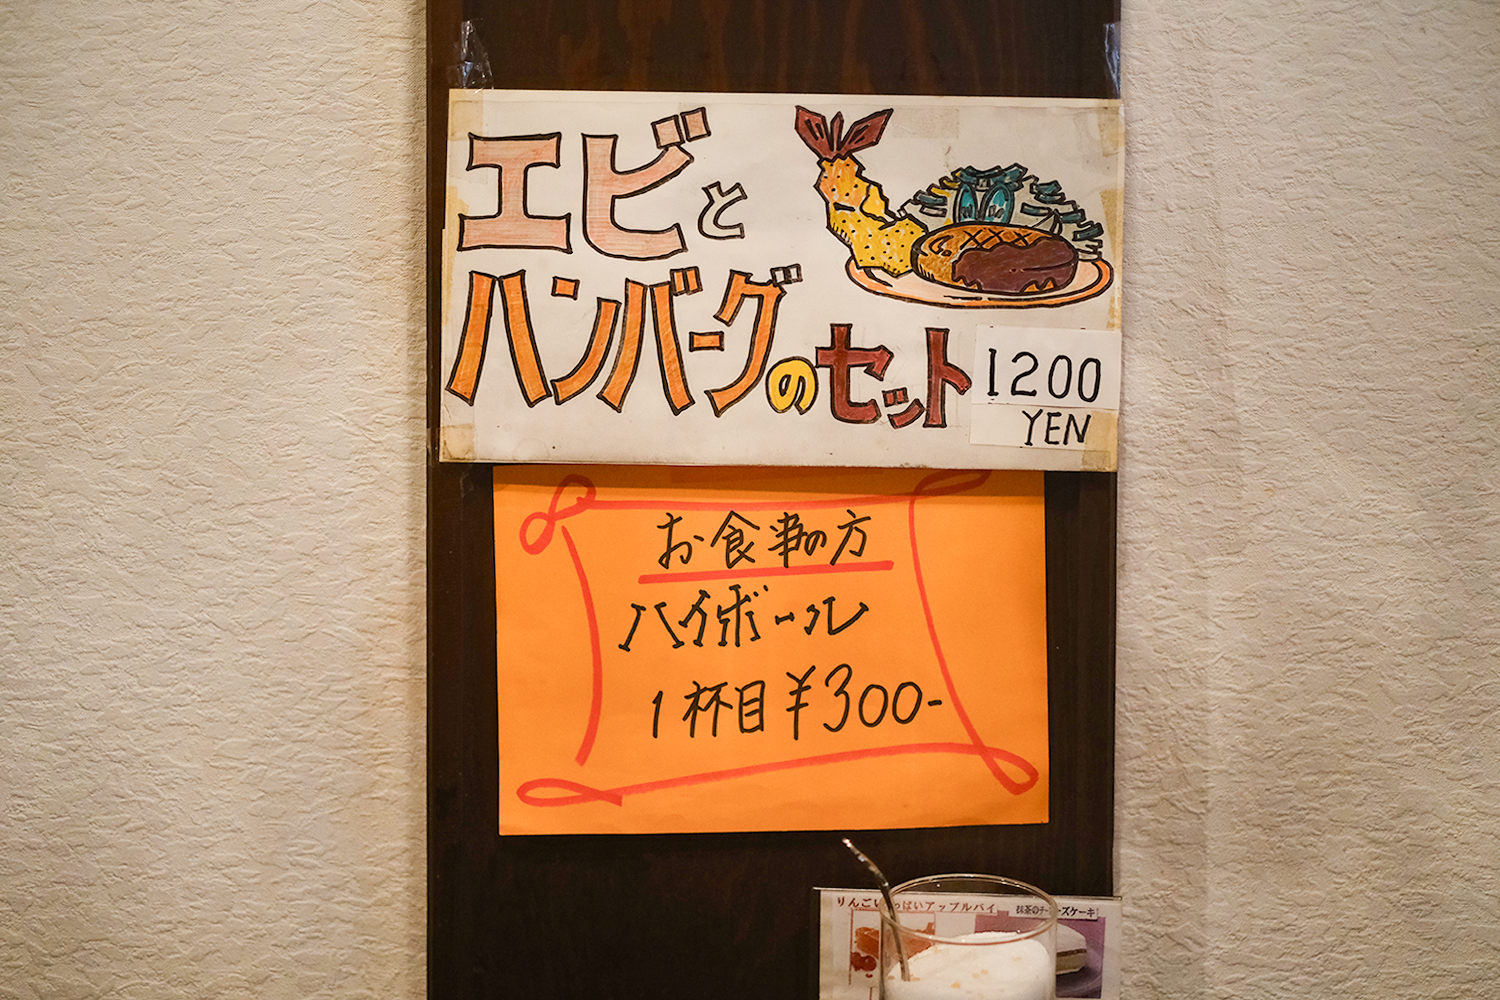 エビと
ハンバーグのセット
1200
YEN
お食事の方
ハイボール
1杯目¥300-
りんごいっぱいアップルパイ
抹茶のチーズケーキ